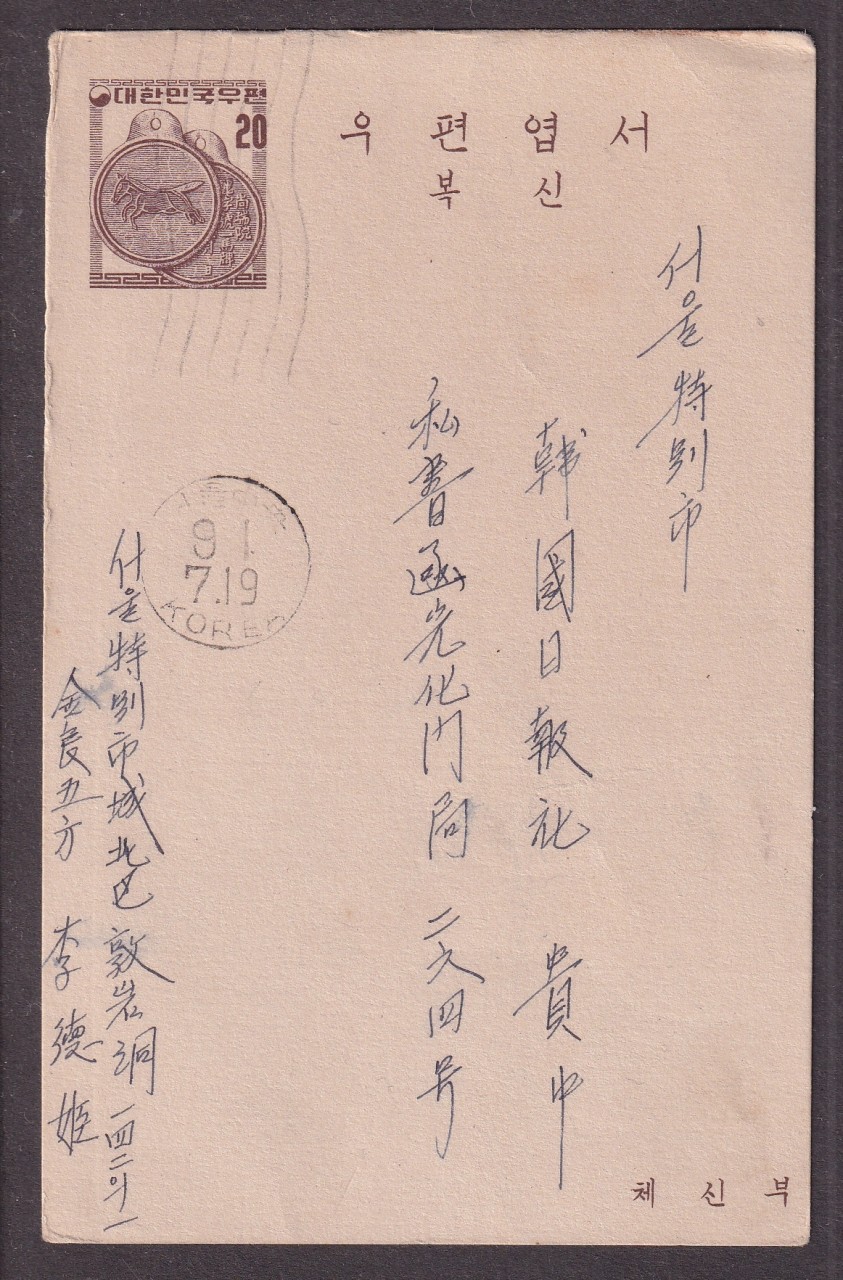 대한민국우편
20
우편엽서
복신
서울特別市
韓國日報社 貴中
私書函光化門局 二六四号
91
7.19
KOREA
서울特別市城北區敦岩洞 一四二의一
金良五方 李德姬
체신부